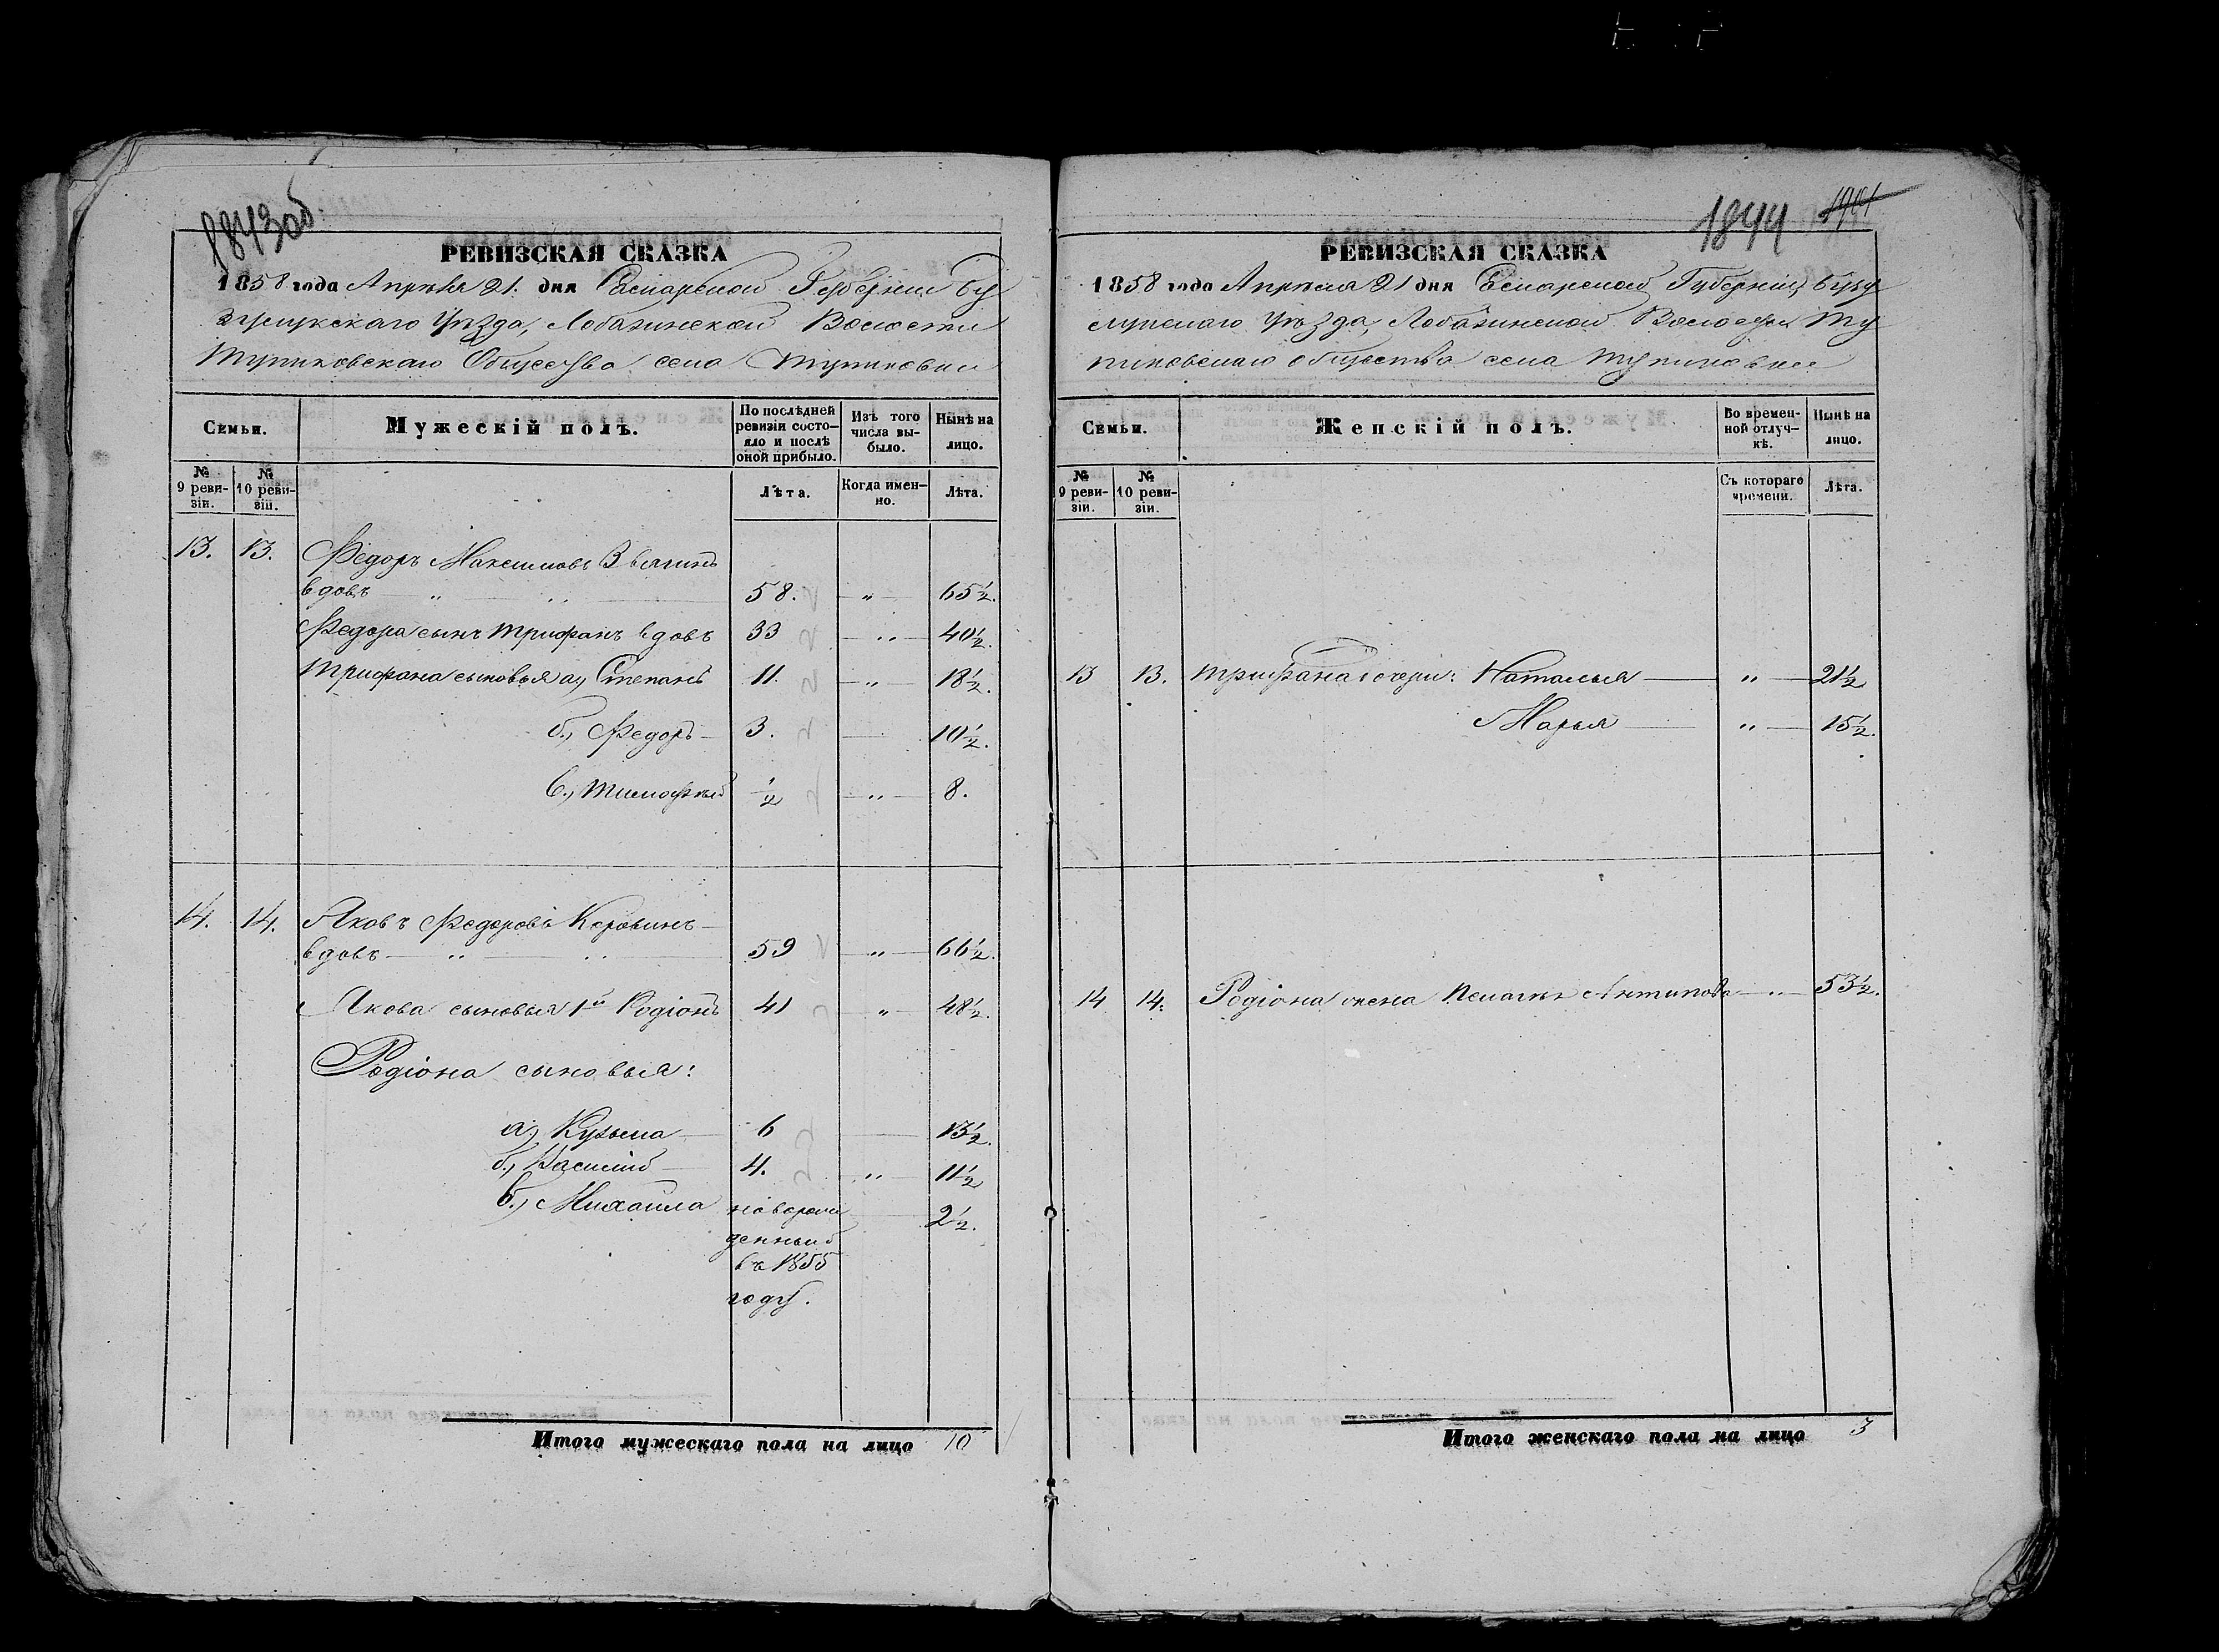 1843об.
РЕВИЗСКАЯ СКАЗКА
1858 года Апрѣля 21. дня Самарской Губернии Бу
зулукскаго Уѣзда, Лобазинской Волости
Тупиковскаго Общества села Тупиковки
Семьи.
Мужескій полъ.
По послѣдней ревизіи состо- яло и послѣ оной прибыло.
Изъ того числа вы- было.
Нынѣ на лицо.
№ 9 реви- зіи.
№ 10 реви- зіи.
Лѣта.
Когда имен- но.
Лѣта.
13. 13. Федоръ Максимовъ
вдовъ " " 58. " 65½.
Федора сынъ Трифанъ вдовъ 33 " 40½.
Трифана сыновья а, Степанъ 11. " 18½.
б., Федоръ 3. 10½.
в., Тимофѣй ½ " 8.
14. 14. Яковъ Федоровъ
вдовъ " " 59 " 66½.
Якова сыновья 1й Родіонъ 41 " 48½.
Родіона сыновья:
а, Кузьма 6 13½.
б, Василій 4. " 11½
в., Михаила новорож 2½.
денный
въ 1855
году.
Итого мужескаго пола на лицо 10
1844 1941
РЕВИЗСКАЯ СКАЗКА
1858 года Апрѣля 21 дня Самарской Губерніи, Бузу
лукскаго Уѣзда, Лобазинской Волости Ту
пиковскаго общества села Тупиковки
Семьи.
Женскій полъ.
Во времен- ной отлуч- кѣ.
Нынѣ на лицо.
№ 9 реви- зіи.
№ 10 реви- зіи.
Съ котораго времени.
Лѣта.
13 13. Трифана дочери: Наталья " 21½
Марья " 15½.
14 14. Родіона жена Антипова " 53½.
Итого женскаго пола на лицо 3